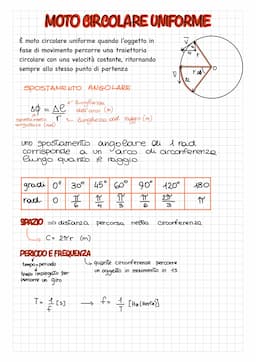 MOTO CIRCOLARE UNIFORME
È moto circolare uniforme quando l'oggetto in
fase di movimento percorre una traiettoria
circolare con una velocità costante, ritornando
sempre allo stesso punto di partenza
SPOSTAMENTO ANGOLARE
Δφ = Δl → lunghezza dell'arco (m)
r → lunghezza del raggio (m)
spostamento angolare (rad)
uno spostamento angolare di 1 rad
corrisponde a un arco di circonferenza
lungo quanto il raggio
gradi 0° 30° 45° 60° 90° 120° 180
rad 0 π/6 π/4 π/3 π/2 2π/3 π
SPAZIO distanza percorsa nella circonferenza
C = 2πr (m)
PERIODO E FREQUENZA
tempo impiegato per
percorrere un giro
quante circonferenze percorre
un oggetto in movimento in 1s
T = 1/f [s] → f = 1/T [Hz (Hertz)]